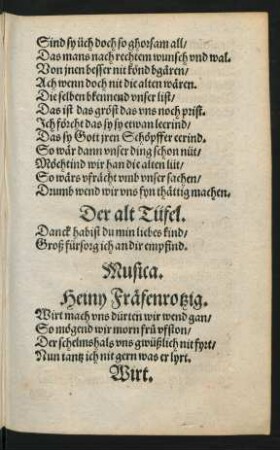 Sind sy üch doch so ghorsam all/
Das mans nach rechtem wunsch vnd wal.
Von jnen besser nit könd bgären/
Ach wenn doch nit die alten wären.
Die selben bkennend vnser list/
Das ist das gröst das vns noch prist.
Ich förcht das sy sy etwan leerind/
Das sy Gott jren Schöpffer eerind.
So wär dann vnser ding schon nüt/
Möchtind wir han die alten lüt/
So wärs vfrächt vmb vnser sachen/
Drumb wend wir vns fyn thättig machen.
Der alt Tüfel.
Danck habist du min liebes kind/
Groß fürsorg ich an dir empfind.
Musica.
Heiny Fräsenrotzig.
Wirt mach vns d ürten wir wend gan/
So mögend wir morn frü vfston/
Der schelm shals vns gwüßlich nit fyrt/
Nun tantz ich nit gern was er lyrt.
Wirt.